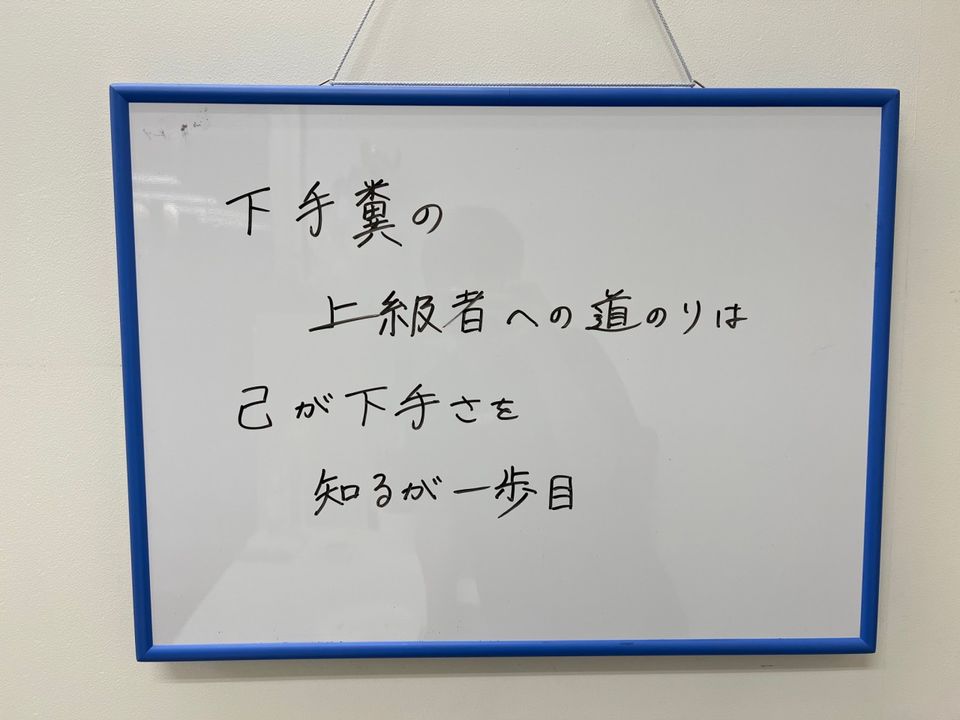 下手糞の
上級者への道のりは
己が下手さを
知るが一歩目